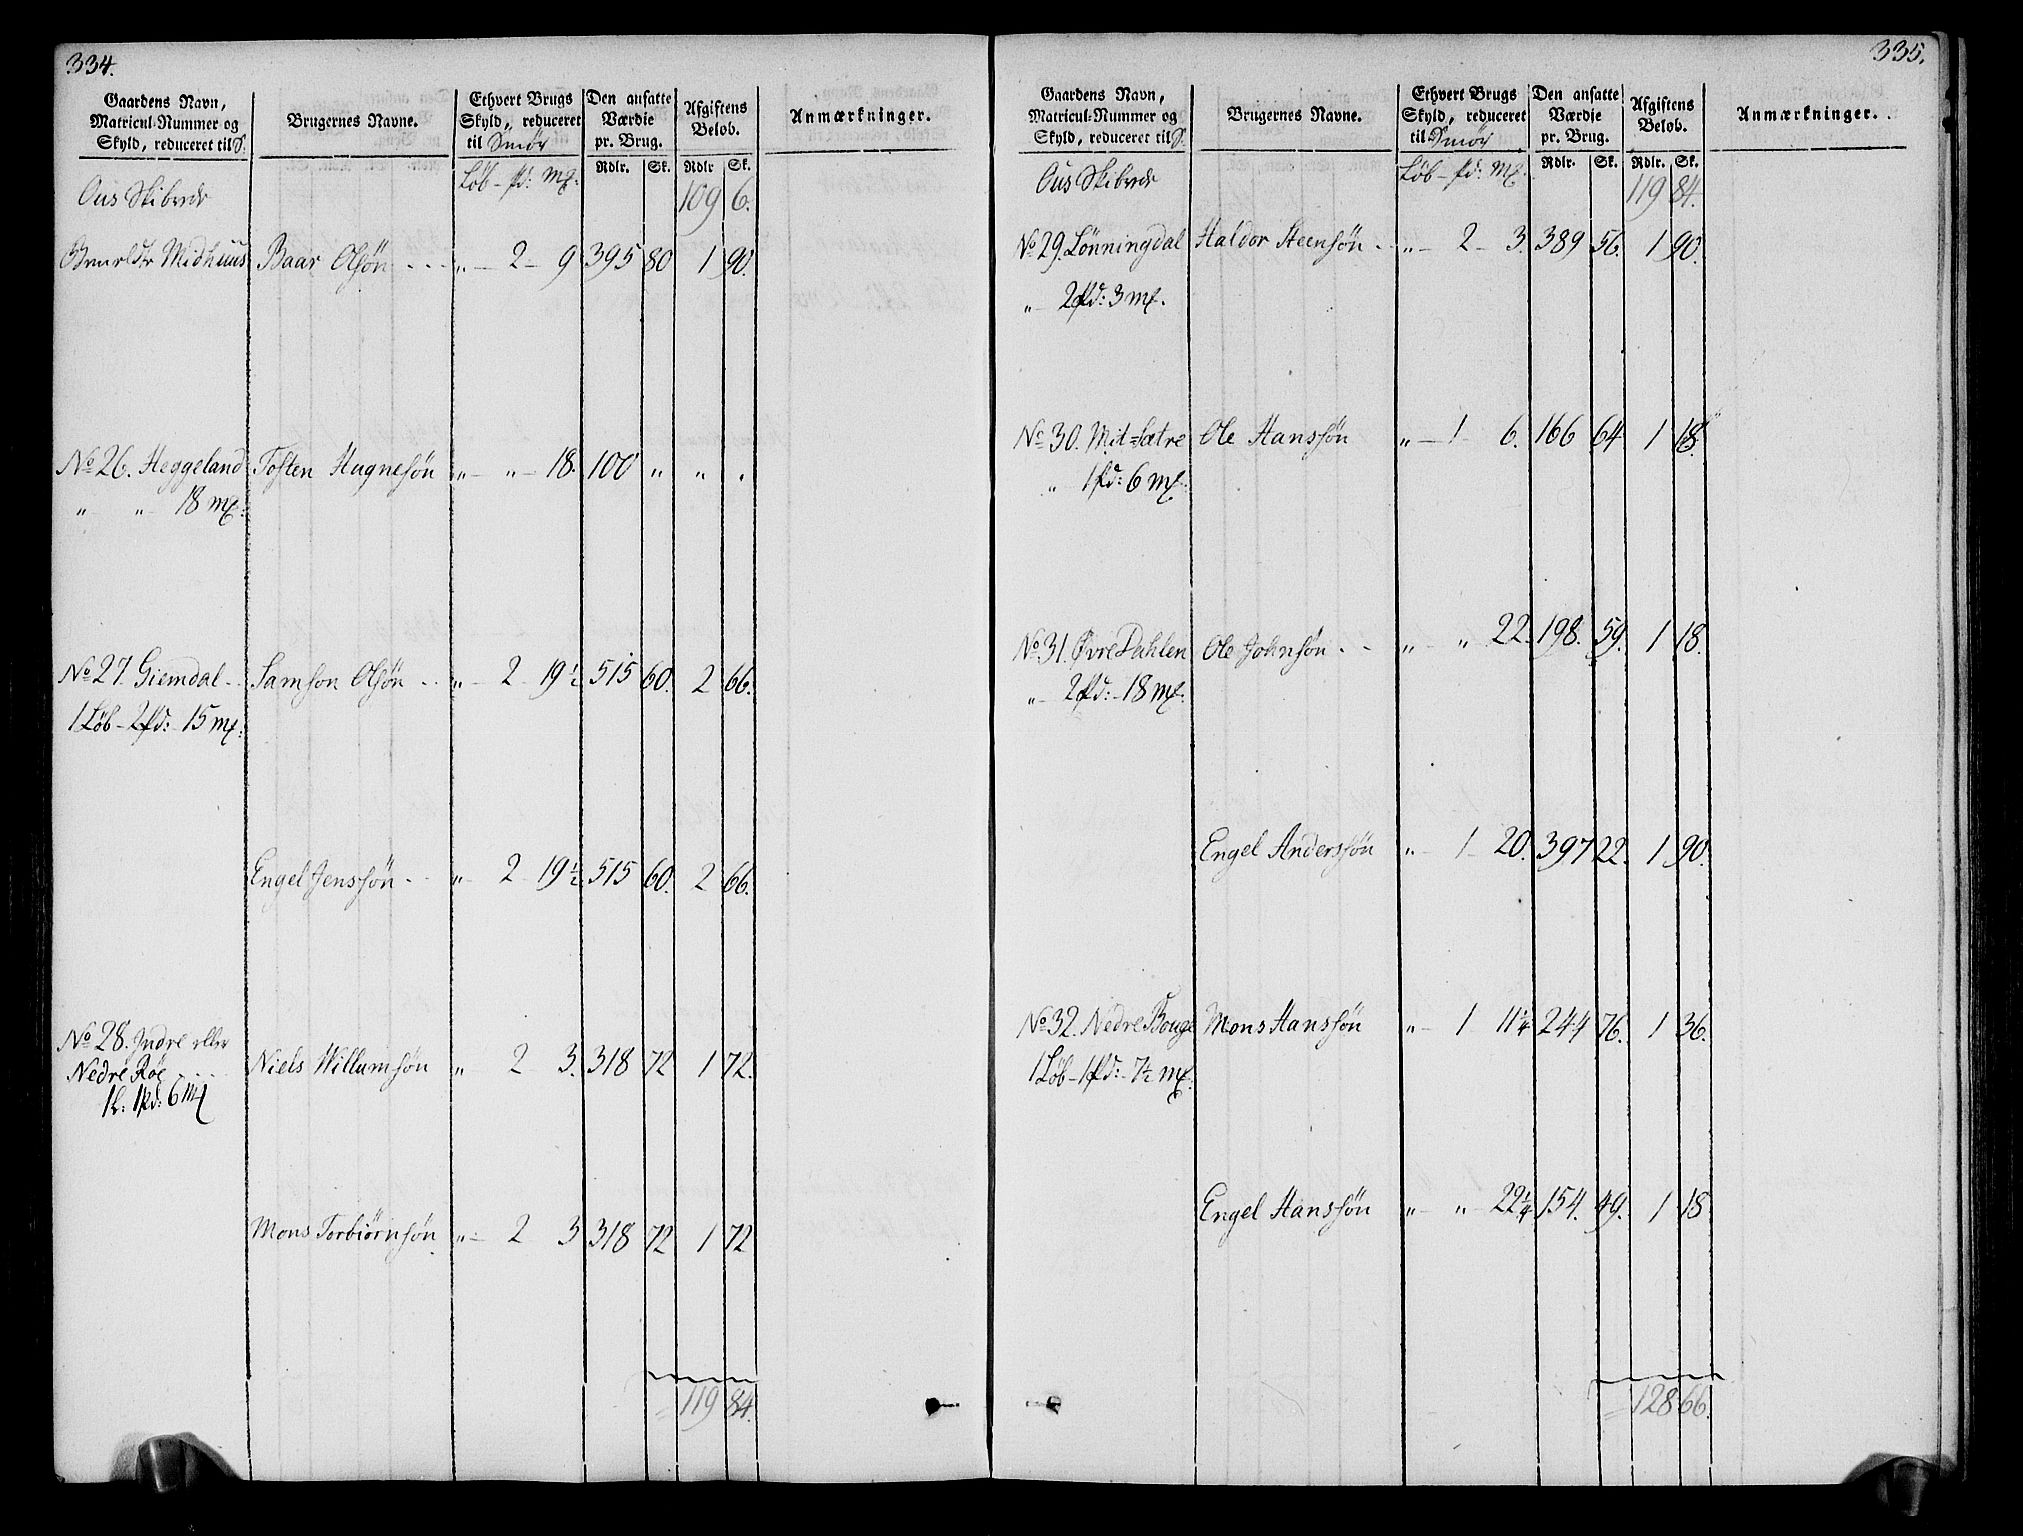 334.
Gaardens Navn, Matricul-Nummer og Skyld, reduceret til S. | Brugernes Navne. | Ethvert Brugs Skyld, reduceret til Smör | Den ansatte Værdie pr. Brug. | Afgiftens Beløb. | Anmærkninger.
Løb - pd: mk: | Rdlr. | Sk. | Rdlr | Sk.
Ous Skibrede | 109 | 6.
Midhuus | Baar Olsön - - - | „ - 2 - 9 | 395 | 80 | 1 | 90.
No 26. Heggeland | Tosten Hugnesön | „ - „ - 18. | 100 | „ | „ | „
„ „ 18 mk:
No 27. Giemdal - - | Samson Olsön - - | „ - 2 - 19 ½ | 515 | 60. | 2 | 66.
1 Løb - 2 pd: - 15 mk:
Engel Jenssön - - | „ - 2 - 19 ½ | 515 | 60. | 2 | 66.
No 28. Indre eller
Nedre Röe - - - | Niels Willumsön | „ 2 3. | 318 | 72 | 1 | 72.
1 L: 1 pd: 6 mk
Mons Torbiörnsön | „ - 2 3 | 318 | 72 | 1 | 72
= 119 | 84.
335.
Gaardens Navn, Matricul-Nummer og Skyld, reduceret til S. | Brugernes Navne. | Ethvert Brugs Skyld, reduceret til Smör | Den ansatte Værdie pr. Brug. | Afgiftens Beløb. | Anmærkninger.
Løb - pd: mk: | Rdlr. | Sk. | Rdlr. | Sk.
Ous Skibrede | 119 | 84.
No 29. Lönningdal | Haldor Steensön - - | „ - 2 - 3. | 389 | 56. | 1 | 90.
„ - 2 pd: 3 mk.
No 30. Mit=sætre | Ole Hanssön | „ - 1 - 6. | 166 | 64 | 1 | 18.
„ 1 pd: 6 mk:
No 31. Øvre Dahlen | Ole Johnsön - - | „ - „ 22 - | 198. | 59. | 1 | 18.
„ - 2 pd: - 18 mk:
Engel Anderssön | „ - 1 - 20. | 397 | 22. | 1 | 90.
No 32. Nedre Bouge | Mons Hanssön | „ - 1 11 ¼ | 244 | 76. | 1 | 36.
1 Løb - 1 pd: - 7 ½ mk:
Engel Hanssön | „ - „ - 22 ¼ | 154. | 49. | 1 | 18.
= 128 | 66.